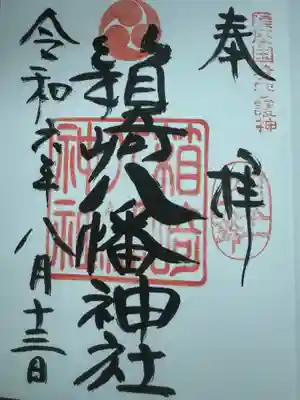 奉拝
箱崎八幡神社
令和六年八月十三日
箱崎
八幡
神社